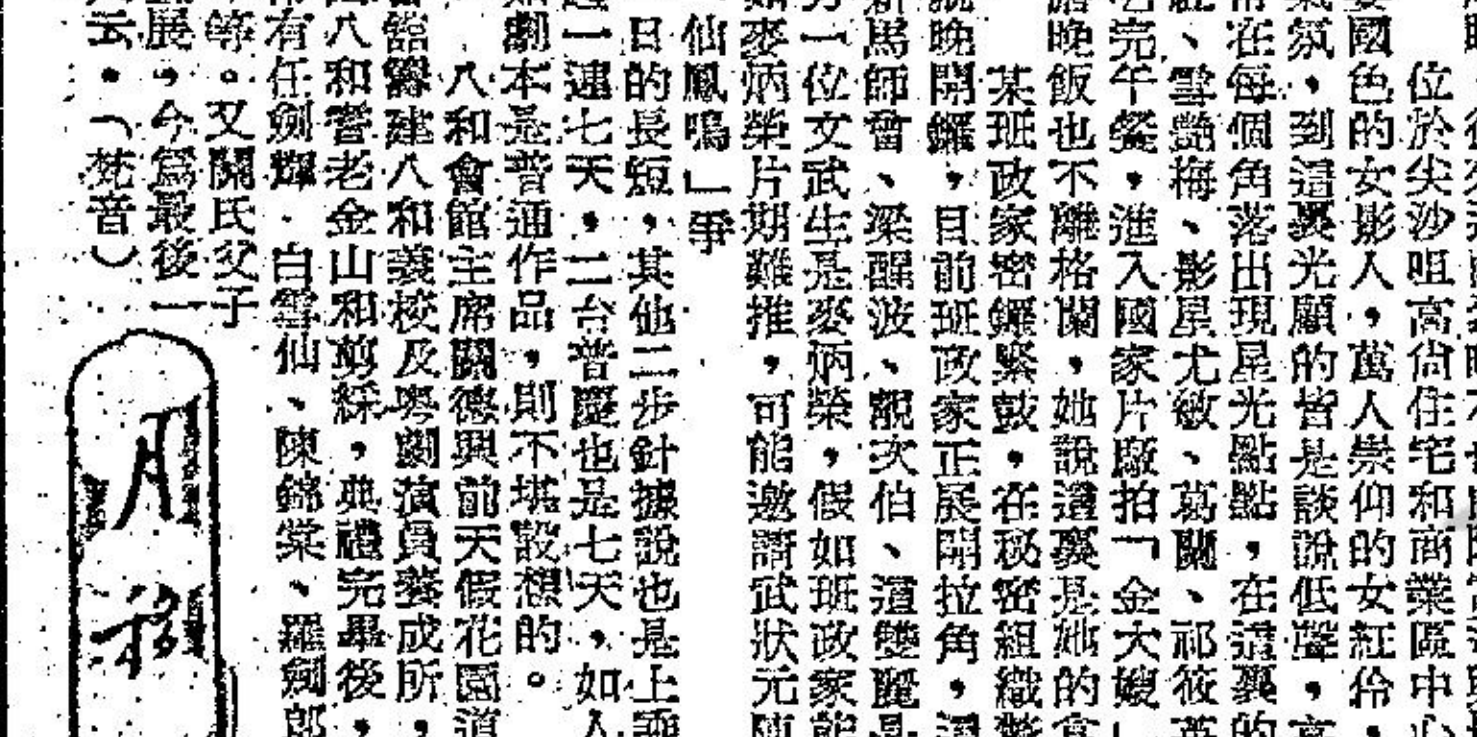 位於尖沙咀高尙住宅和商業區中心
國色的女影人，萬人崇仰的女紅伶，
氣氛，到這裏光顧的皆是談說低聲，高
常在每個角落出現星光點點，在這裏的
、雪艷梅、影星尤敏、葛蘭、祁筱英
完午餐，進入國家片廠拍「金大嫂」
晚飯也不離格蘭，她說這裏是她的食
某班政家密鑼緊鼓，在秘密組織
晚開鑼，目前班政家正展開拉角，
新馬師曾、梁醒波、靚次伯、這雙麗
另一位文武生是麥炳榮，假如班政家能
如麥炳榮片期難推，可能邀請武狀元陳
仙鳳鳴」爭
日的長短，其他二步針據說也是上
一連七天，二台普慶也是七天，如入
劇本是普通作品，則不堪設想的。
八和會館主席關德興前天假花園道
籌建八和義校及粵劇演員養成所，
八和耆老金山和剪綵，典禮完畢後，
有任劍輝．白雪仙、陳錦棠、羅劍郎
等。又關氏父子
展，今爲最後一
云。（梵音）
月移